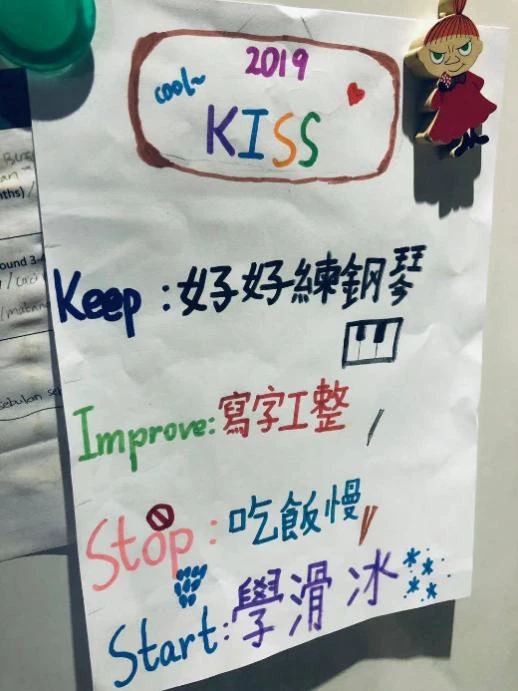 2019
cool~
KISS
Keep：好好練鋼琴
Improve:寫字工整
Stop：吃飯慢
Start:學滑冰
ound 3
sebulan se